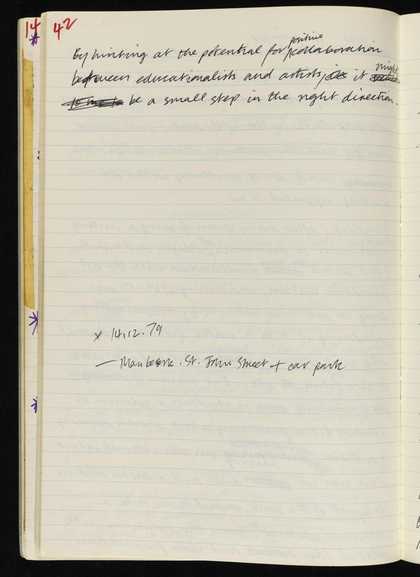 14 42
By hinting at the potential for positive collaboration
between educationalists and artists, it might
be a small step in the right direction.
x 14.12.79
— St. John Street + car park